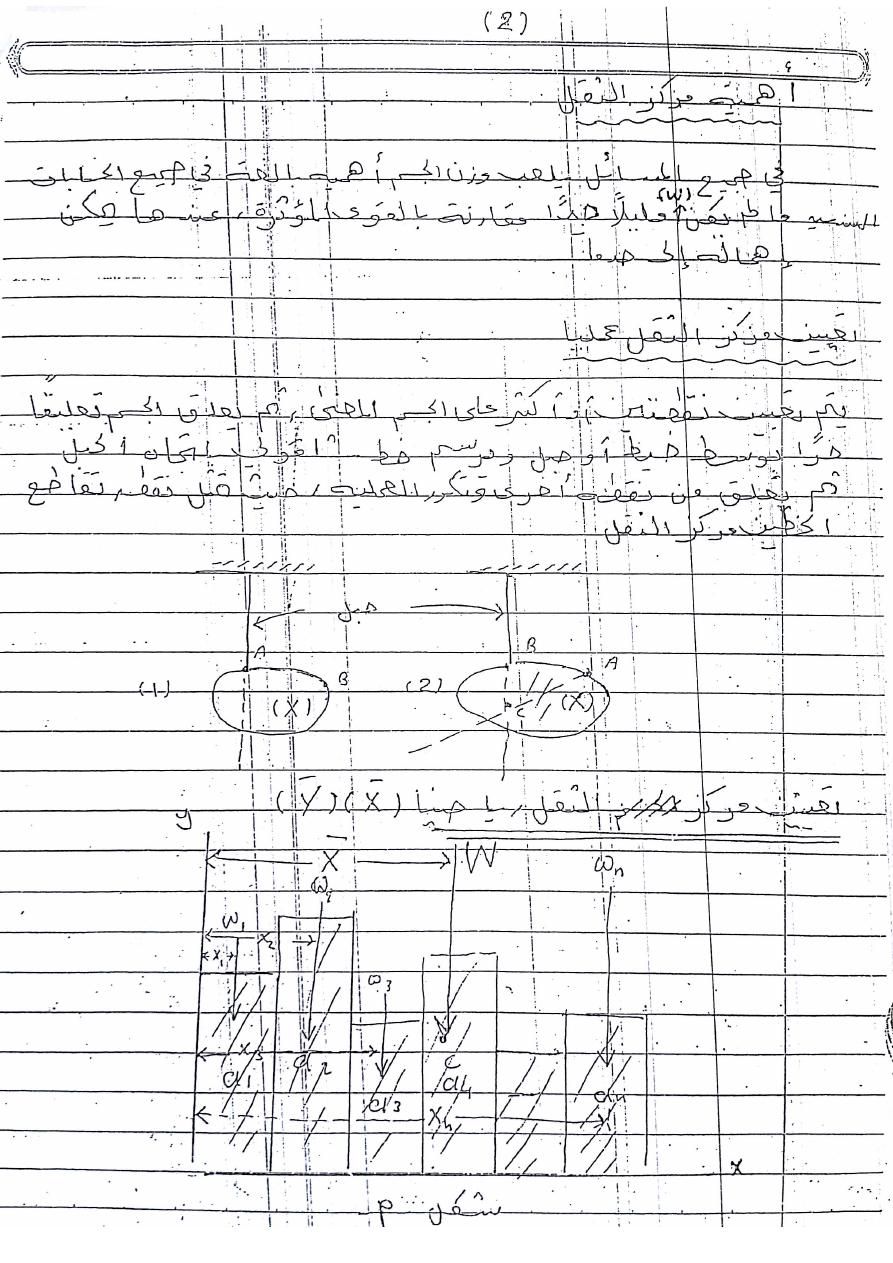 (2)
أهمية مركز الثقل
في جميع المسائل يلعب وزن الجسم أهمية بالغة في جميع الحسابات
ما لم يكن (W) قليلاً جداً مقارنة بالقوى المؤثرة، عندها يمكن
إهماله إلى
تعيين مركز الثقل عمليا
يتم تعيين نقطتين أو أكثر على الجسم المعني، ثم يعلق الجسم تعليقاً
حراً بتوسط خيط أو حبل ونرسم خط شاقولي باتجاه الحبل
ثم يعلق من نقطة أخرى وتكرر العملية، حيث تمثل نقطة تقاطع
الخطين مركز الثقل
حبل
A B
B A
(1) (X) (2) (X)
C
تعيين مركز الثقل رياضيا (X̄) (Ȳ)
y
X̄ W ωn
ω2
W1
x2
x1
ω3
x3 a2 C
a1 a4
a3 an
x
شكل م